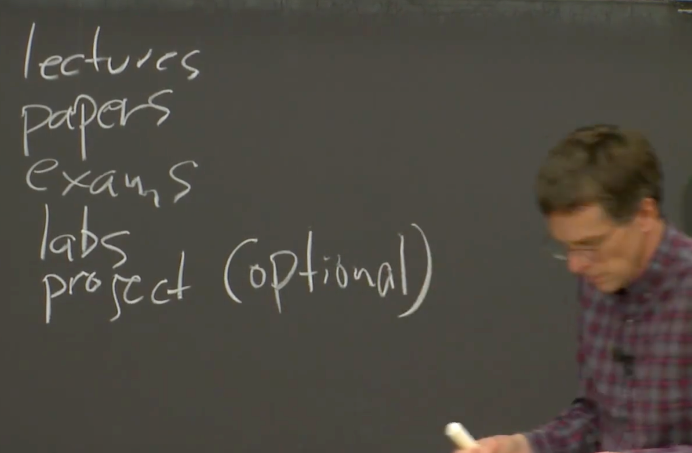 lectures
papers
exams
labs
project (optional)